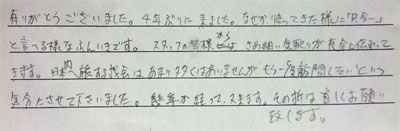 有りがとうございました。4年ぶりに来ました。なぜか帰ってきた様に「只今ー」
と言える様なふんいきです。スタッフの皆様からは きめ細い気配りが充分に伝わって
きます。日本内旅する機会は あまり多くはありませんが もう一度訪問したいという
気分にさせて下さいました。幾年か経って、又きます。その折は宜しくお願い
致します。